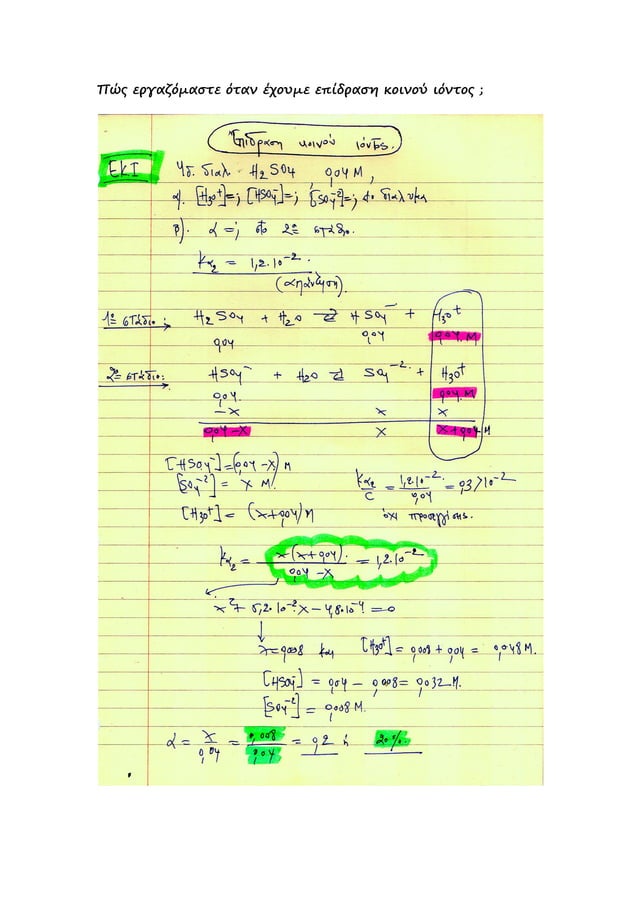 Πώς εργαζόμαστε όταν έχουμε επίδραση κοινού ιόντος ;
Επίδραση κοινού ιόντος.
ΕΚΙ
Υδ. διαλ. H2SO4 0,04 M,
α). [H3O+]=; [HSO4-]=; [SO4-2]=; στο διάλυμα
β). α=; στο 2ο στάδιο.
Kα2 = 1,2.10-2.
(απάντηση)
1ο στάδιο: H2SO4 + H2O ⇄ HSO4- + H3O+
0,04 0,04 0,04 M
2ο στάδιο: HSO4- + H2O ⇄ SO4-2 + H3O+
0,04 0,04 M
-x x x
0,04-x x x+0,04 M
[HSO4-]=(0,04-x) M
[SO4-2] = x M.
[H3O+] = (x+0,04) M
Kα2/C = 1,2.10-2/0,04 = 0,3>10-2
όχι προσεγγίσεις.
Kα2 = x(x+0,04)/0,04-x = 1,2.10-2
x2+5,2.10-2x-4,8.10-4=0
x=0,008 και [H3O+] = 0,008+0,04 = 0,048 M.
[HSO4-] = 0,04 - 0,008 = 0,032 M.
[SO4-2] = 0,008 M.
α = x/0,04 = 0,008/0,04 = 0,2 ή 20%.